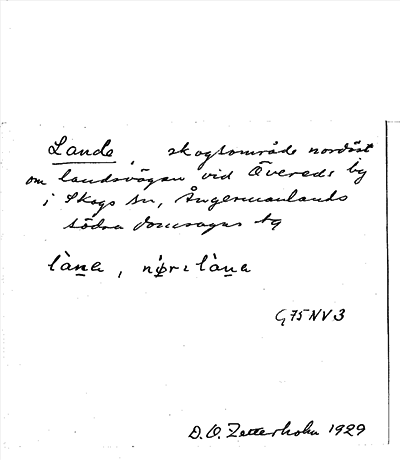 Lande, skogsområde nordöst
om landsvägen vid Övereds by
i Skogs sn, Ångermanlands
södra domsagas tg
làn̲a, nø̀rɩlàn̲a
G 75 NV 3
D. O. Zetterholm 1929